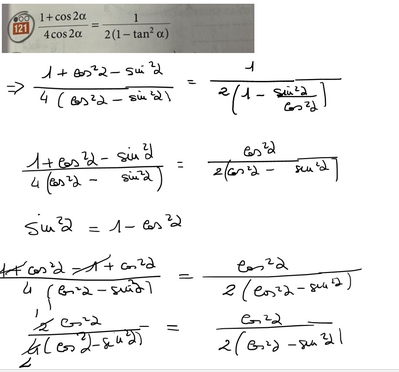 121 (1+cos2α)/(4cos2α) = 1/(2(1−tan²α))
=> (1+cos²α−sin²α)/(4(cos²α−sin²α)) = 1/(2(1−sin²α/cos²α))
(1+cos²α−sin²α)/(4(cos²α−sin²α)) = cos²α/(2(cos²α−sin²α))
sin²α = 1−cos²α
(1+cos²α−1+cos²α)/(4(cos²α−sin²α)) = cos²α/(2(cos²α−sin²α))
1
2cos²α/(4(cos²α)−sin²α) = cos²α/(2(cos²α−sin²α))
2